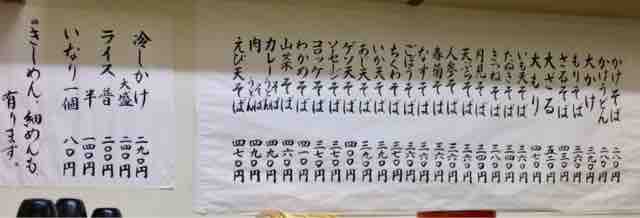 かけそば 二八〇円
かけうどん 二八〇円
大かけ 三九〇円
もりそば
ざるそば 四三〇円
大ざる 五二〇円
大もり
いも天そば 三八〇円
たぬきそば 三六〇円
きつねそば 三六〇円
月見そば 三四〇円
天ぷらそば 三六〇円
人参そば 三六〇円
春菊そば 三六〇円
なすそば 三六〇円
ごぼうそば 三六〇円
ちくわそば
いか天そば 三九〇円
あじ天そば 三九〇円
ゲソ天そば 三九〇円
ソーセージそば 三七〇円
コロッケそば 三七〇円
わかめそば
山菜そば 四六〇円
カレーそばうどん 四九〇円
肉そばうどん 四九〇円
えび天そば 四七〇円
冷しかけ 二九〇円
ライス大盛 二四〇円
普 二〇〇円
半 一四〇円
いなり一個 八〇円
"きしめん、細めんも、
有ります。